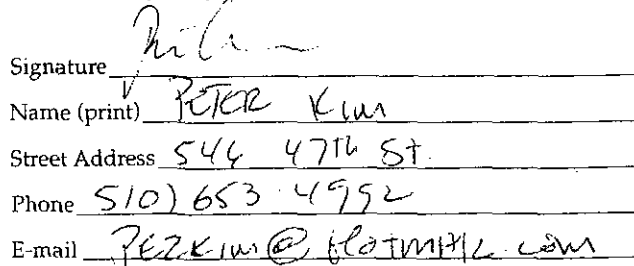 Signature
Name (print) PETER Kim
Street Address 546 47th St.
Phone 510) 653-4992
E-mail PEZKim@HotMAIL.com